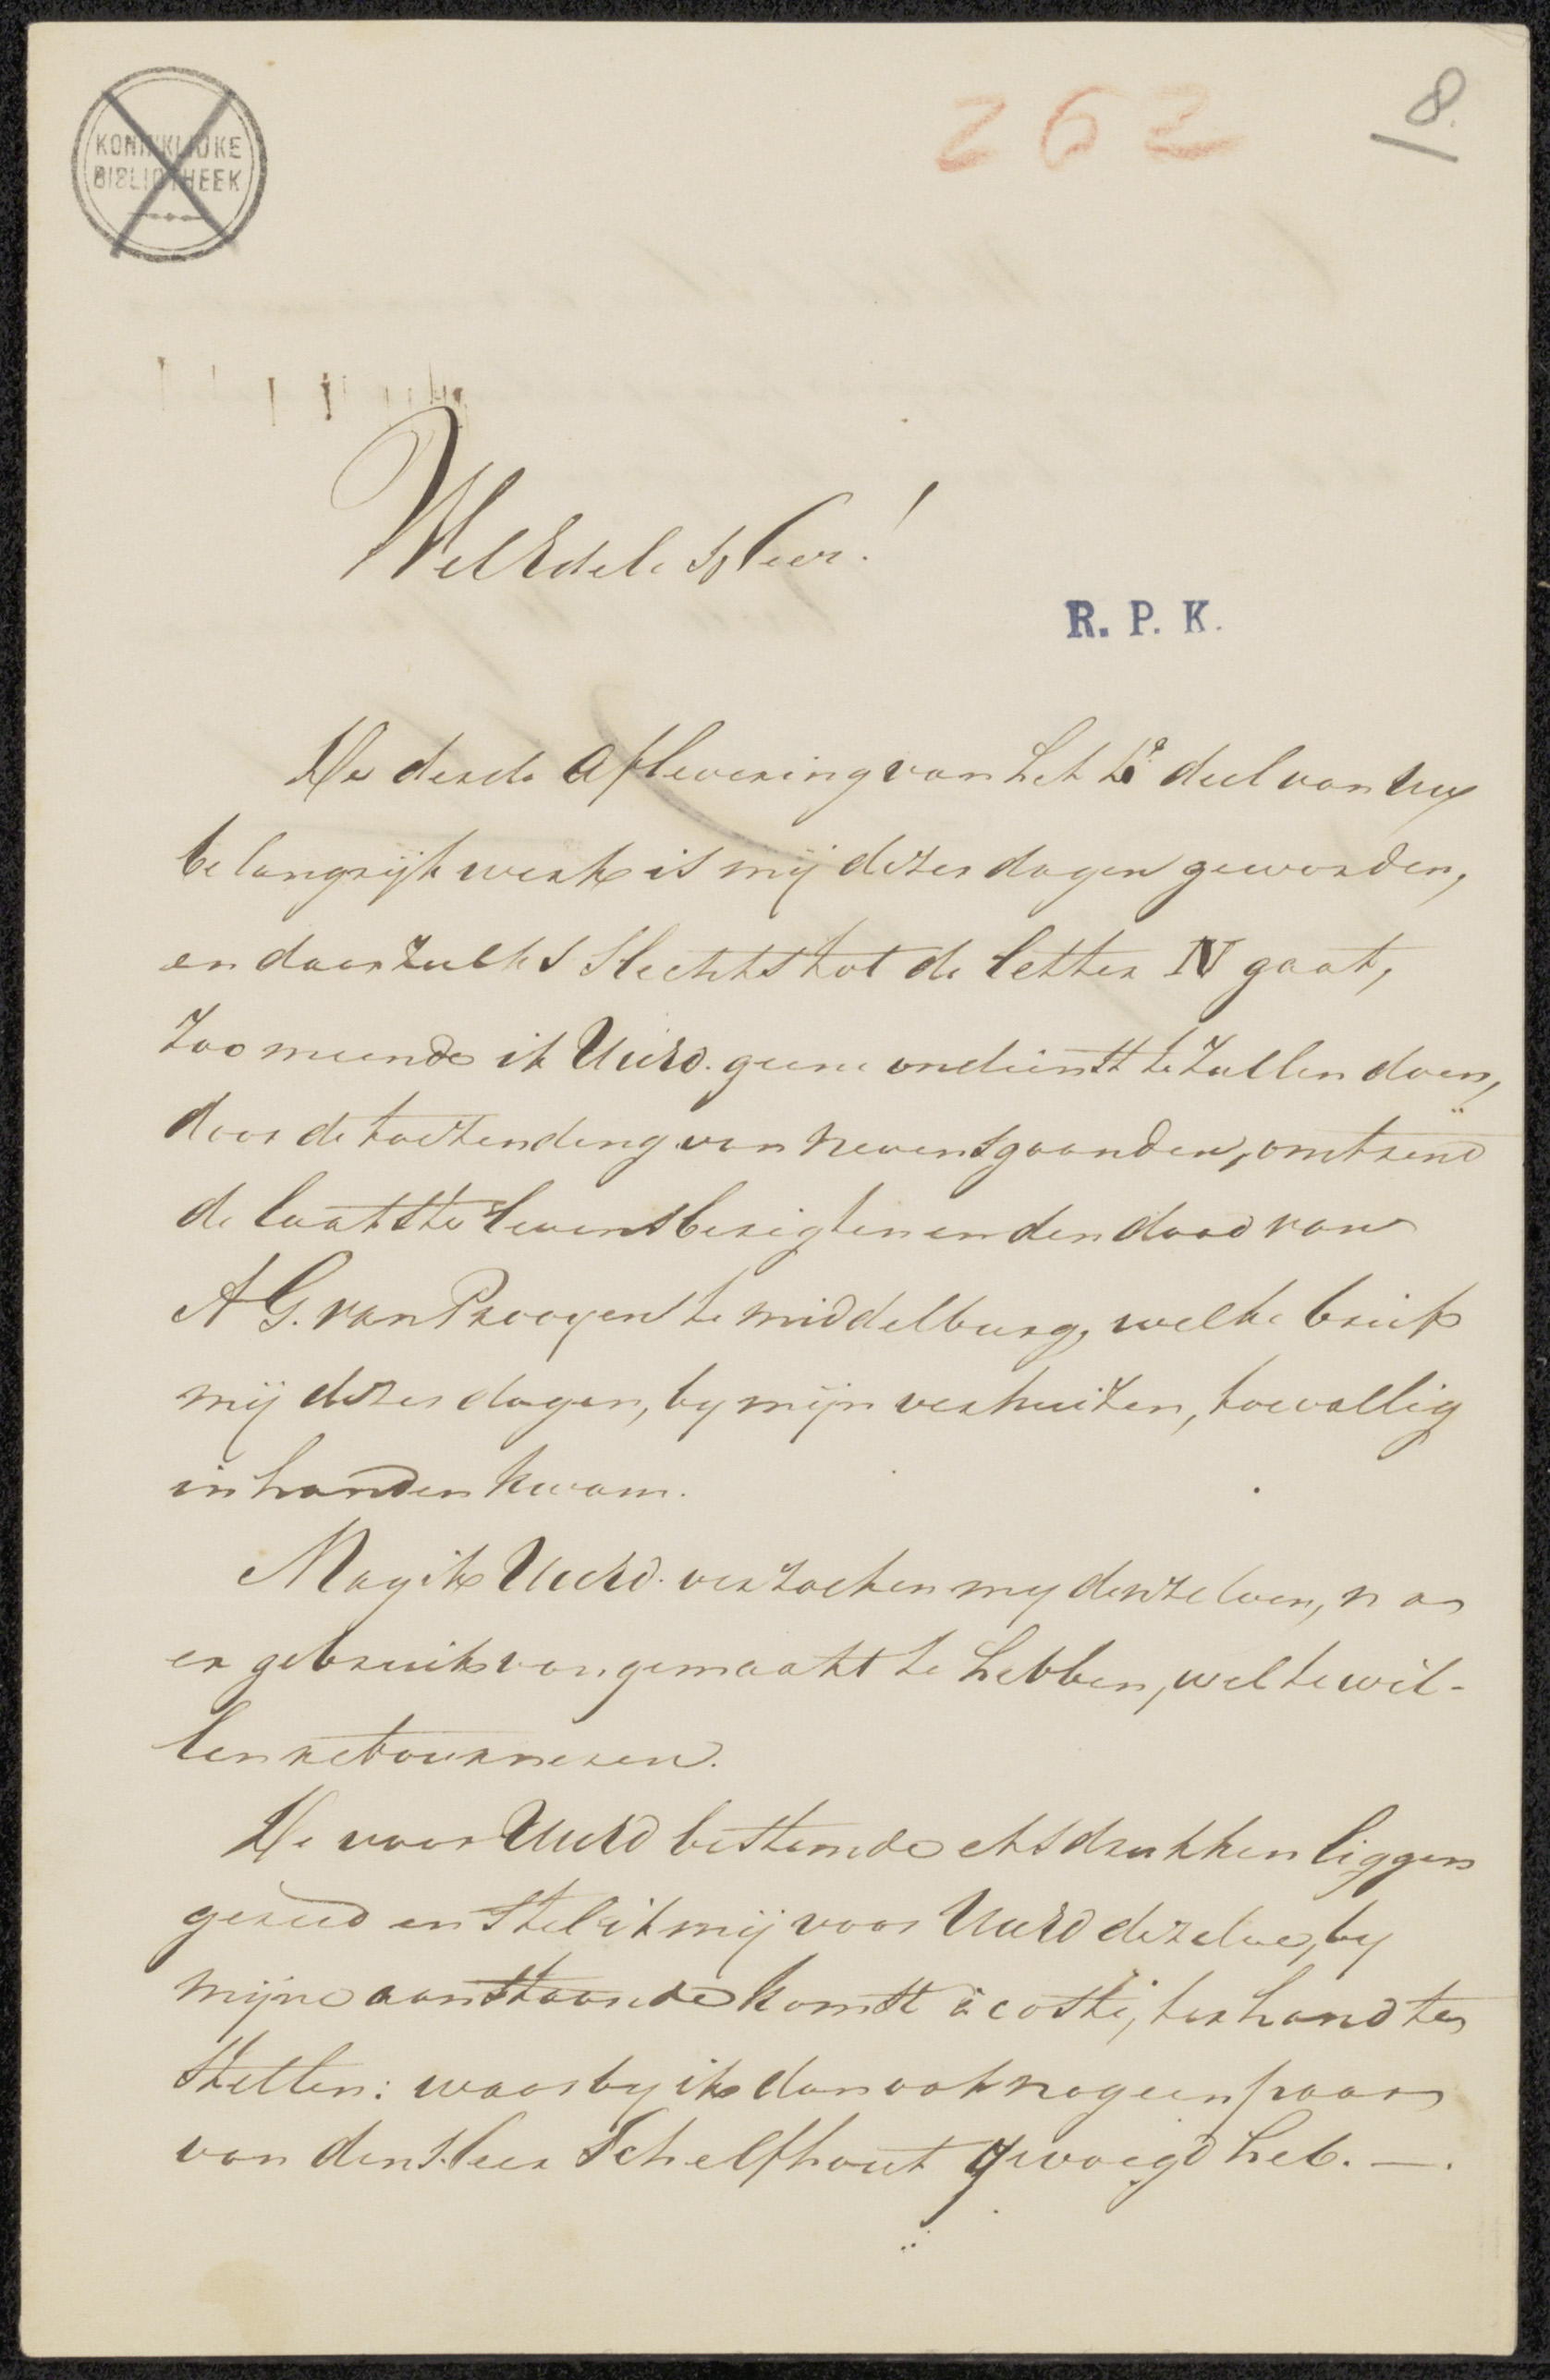 262
8.
KONINKLIJKE
BIBLIOTHEEK
WelEdele Heer!
R. P. K.
De derde Aflevering van het 2e deel van Uw
belangrijk werk is mij dezer dagen geworden,
en daar zulks slechts tot de letter N gaat,
zoo meende ik UwEd. geene ondienst te zullen doen,
door de toezending van nevensgaanden, omtrend
de laatste levensberigten en den dood van
A G. van Prooyen te middelburg, welke brief
mij dezer dagen, by mijn verhuizen, toevallig
in handen kwam.
Mag ik UwEd. verzoeken my denzelven, na
er gebruik van gemaakt te hebben, wel te wil-
len retourneren.
De voor UwEd bestemde etsdrukken liggen
gereed en stel ik mij voor UwEd dezelve, by
mijne aanstaande komst à costi, ter hand te
stellen: waarby ik dan ook nog een paar
van den Heer Schelfhout gevoegd heb. —.